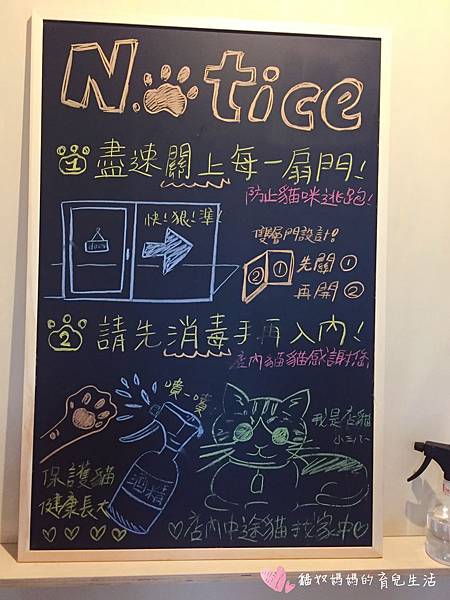 Notice
1 盡速關上每一扇門!
防止貓咪逃跑!
快!狠!準!
door
雙層門設計!
② ① 先關①
再開②
2 請先消毒手再入內!
店內貓貓感謝您
噴~噴
酒精
保護貓
健康長大
我是店貓
店內中途貓找家中
貓奴媽媽的育兒生活